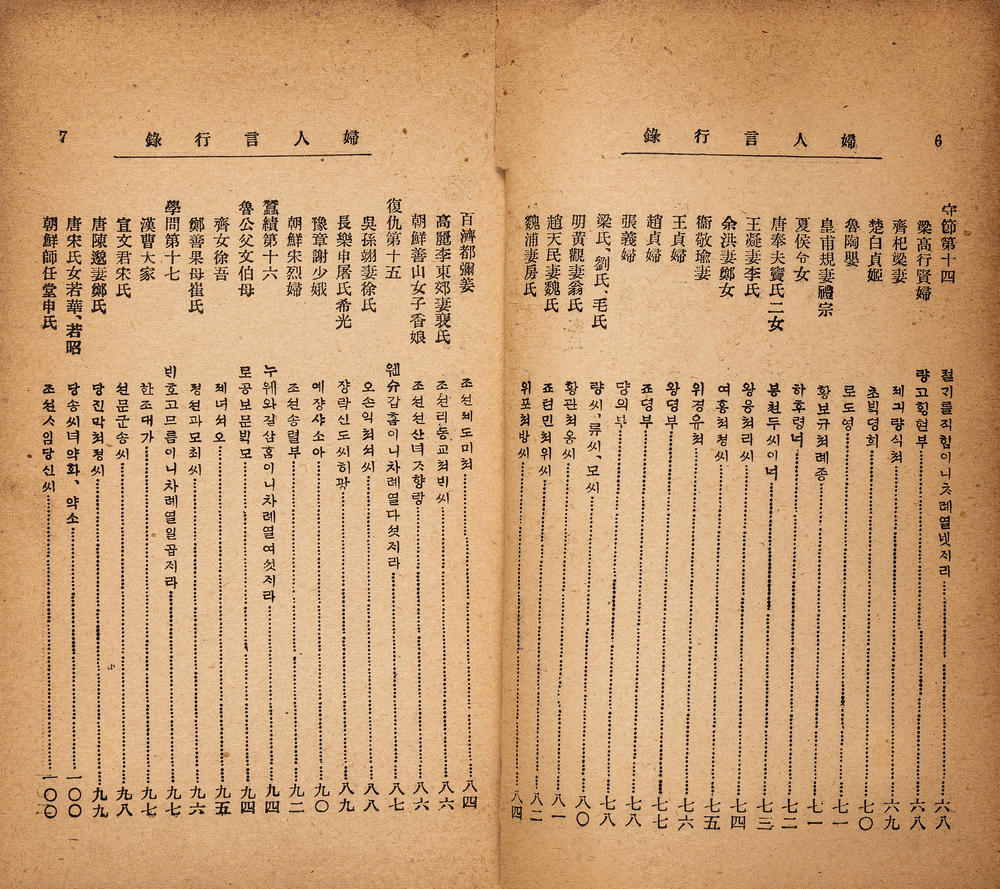 6
婦人言行錄
守節第十四 절기를직힘이니차례열넷저리 六八
梁高行賢婦 량고힝현부 六八
齊杞梁妻 졔긔량식쳐 六九
楚白貞姬 초빅뎡희 七〇
魯陶嬰 로도영 七一
皇甫規妻禮宗 황보규쳐례종 七一
夏侯令女 하후령녀 七二
唐奉夫竇氏二女 봉쳔두씨이녀 七三
王凝妻李氏 왕응쳐리씨 七四
余洪妻鄭女 여홍쳐정씨 七五
衞敬瑜妻 위경유쳐 七六
王貞婦 왕뎡부 七七
趙貞婦 죠뎡부 七八
張義婦 댱의부 七八
梁氏、劉氏、毛氏 량씨、류씨、모씨 八〇
明黃觀妻翁氏 황관쳐옹씨 八一
趙天民妻魏氏 죠텬민쳐위씨 八二
魏浦妻房氏 위포쳐방씨 八四
7
婦人言行錄
百濟都彌妻 조션졔도미쳐 八四
高麗李東郊妻裵氏 조션리동교쳐비씨 八六
朝鮮善山女子香娘 조션션산녀ᄌ향랑 八六
復仇第十五 웬슈갑흠이니차례열다섯저라 八七
吳孫翊妻徐氏 오손익쳐셔씨 八八
長樂申屠氏希光 쟝락신도씨히광 八九
豫章謝少娥 예쟝샤소아 九〇
朝鮮宋烈婦 조션송렬부 九二
蠶績第十六 누웨와길삼홈이니차례열여섯저라 九四
魯公父文伯母 로공보문빅모 九四
齊女徐吾 졔녀셔오 九五
鄭善果母崔氏 정션과모최씨 九六
學問第十七 비호고므름이니차례열일곱저라 九七
漢曹大家 한조대가 九七
宣文君宋氏 션문군송씨 九八
唐陳邈妻鄭氏 당진막쳐정씨 九九
唐宋氏女若華、若昭 당송씨녀약화、약소 一〇〇
朝鮮師任堂申氏 조션ᄉ임당신씨 一〇〇